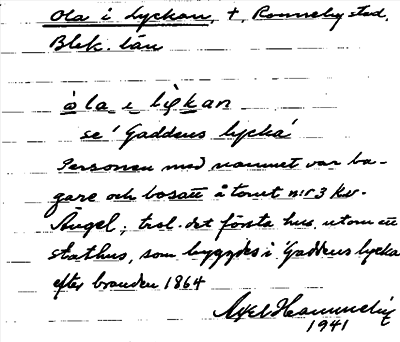 Ola i Lyckan, †, Ronneby stad,
Blek. län
ola i lykan
se 'Gaddens lycka'
Personen med namnet var ba-
gare och bosatt å tomt n:r 3 kv.
Angel; trol. det första hus, utom ett
stathus, som byggdes i 'Gaddens lycka
efter branden 1864
Axel
1941